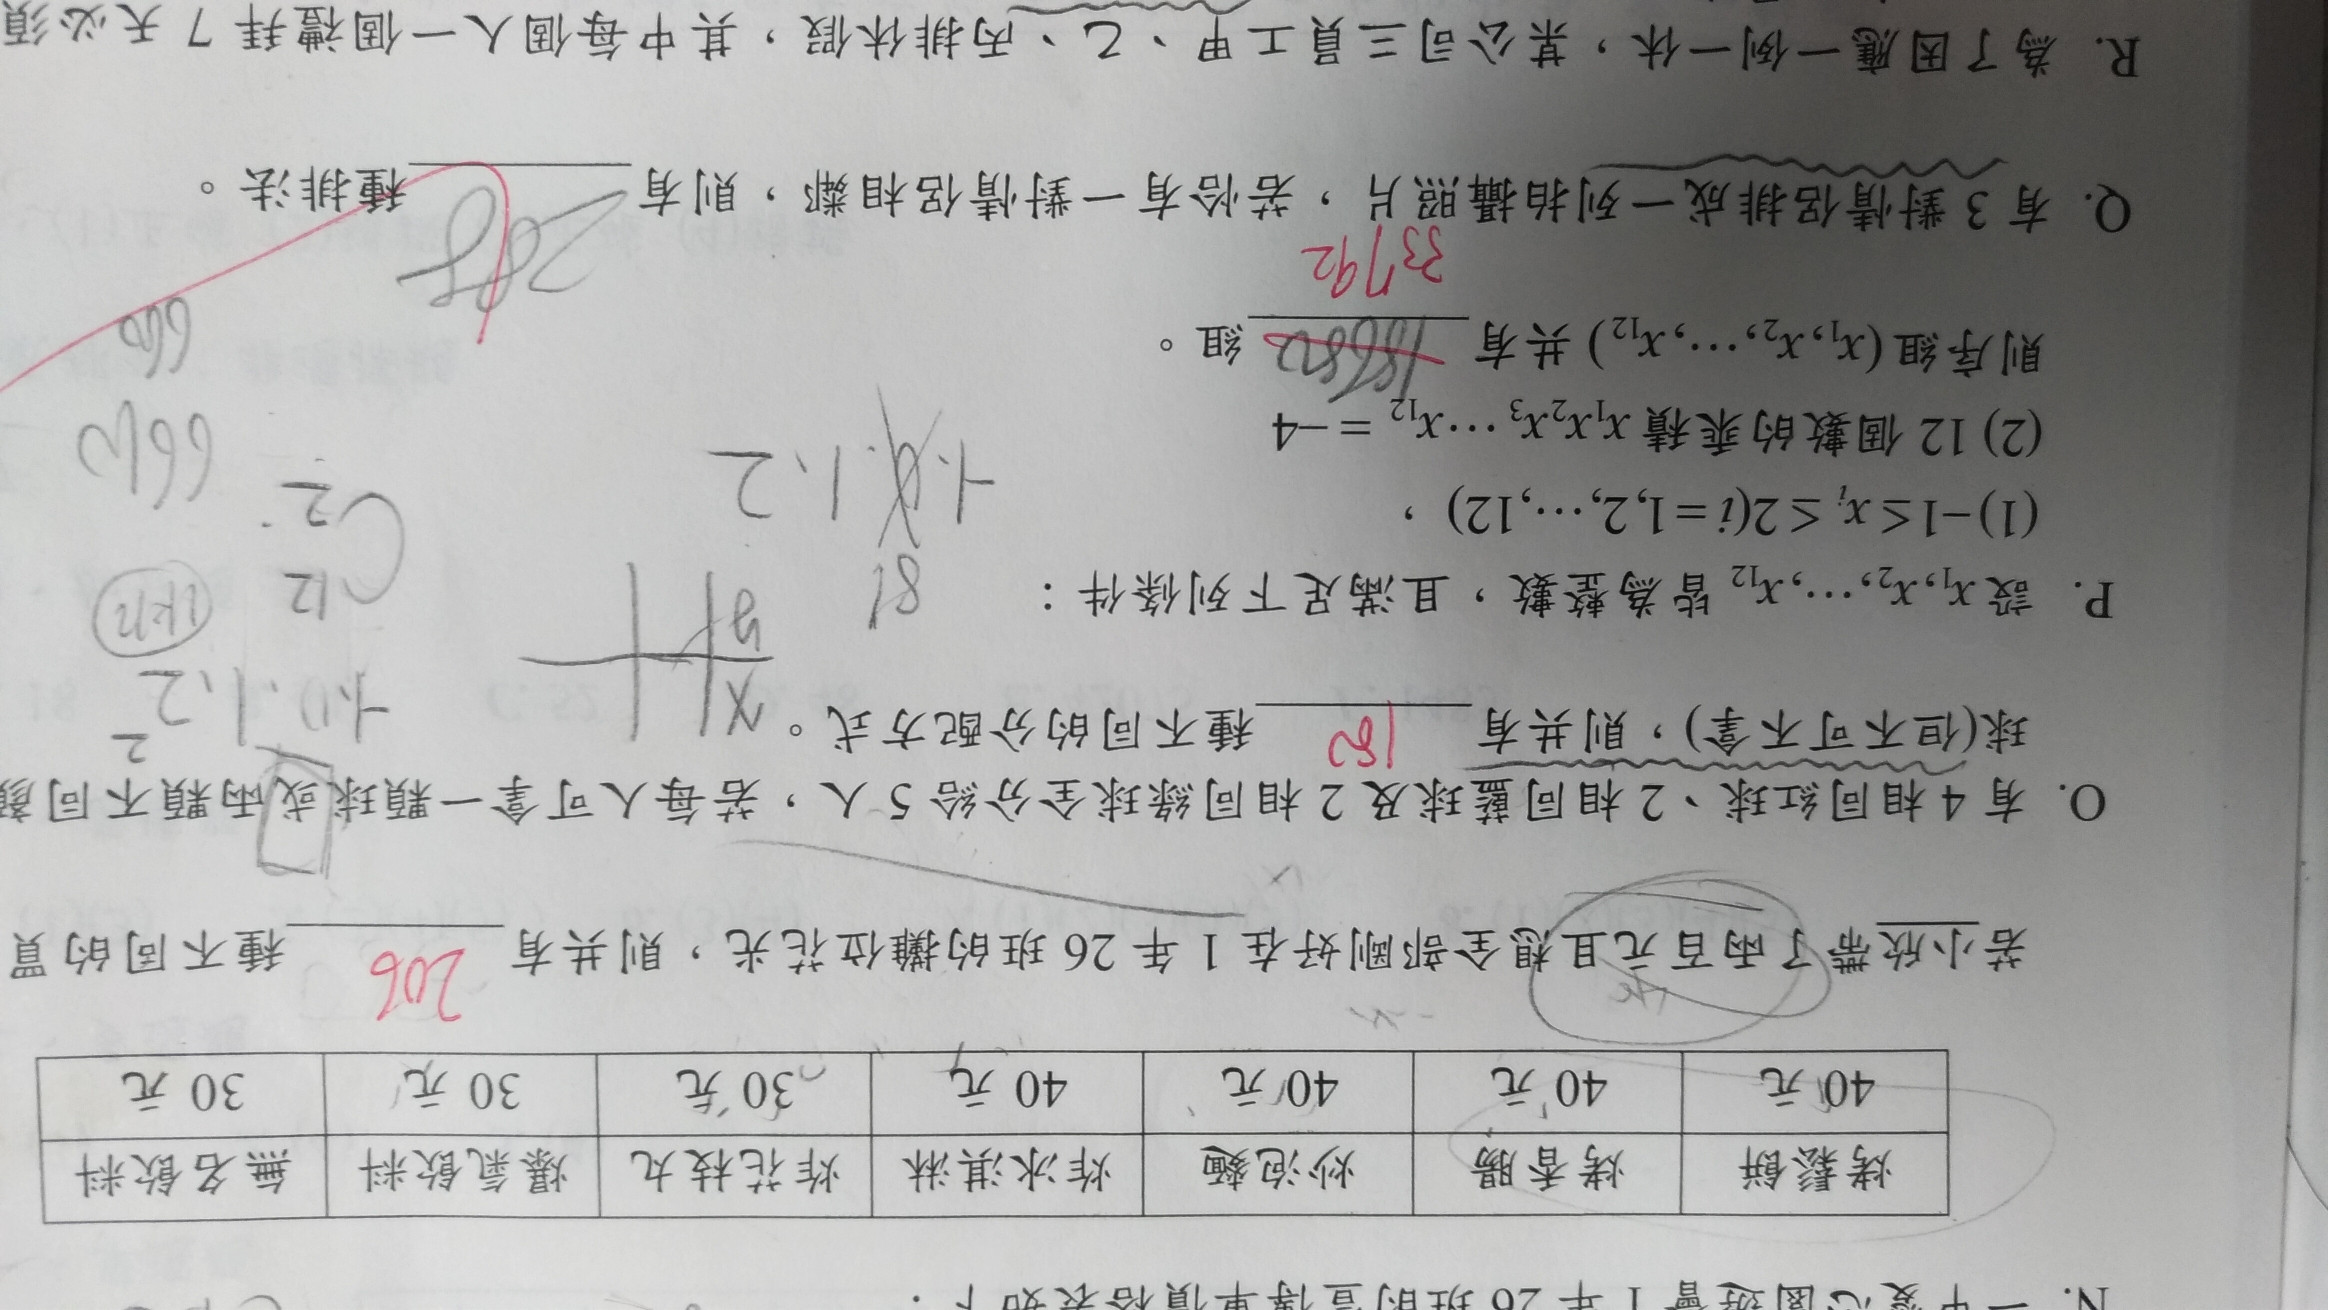 N. 一中愛心園遊會 1 年 26 班的宣傳單價格表如下：
烤鬆餅 烤香腸 炒泡麵 炸冰淇淋 炸花枝丸 爆氣飲料 無名飲料
40 元 40 元 40 元 40 元 30 元 30 元 30 元
若小欣帶了兩百元且想全部剛好在 1 年 26 班的攤位花光，則共有 206 種不同的買
O. 有 4 相同紅球、2 相同藍球及 2 相同綠球全分給 5 人，若每人可拿一顆球或兩顆不同顏
球(但不可不拿)，則共有 180 種不同的分配方式。
P. 設 x₁,x₂,⋯,x₁₂ 皆為整數，且滿足下列條件：
81
(1) −1≤xᵢ≤2(i=1,2,⋯,12)，
-1.0.1、2
(2) 12 個數的乘積 x₁x₂x₃⋯x₁₂ = −4
則序組(x₁,x₂,⋯,x₁₂) 共有 組。
33792
660
Q. 有 3 對情侶排成一列拍攝照片，若恰有一對情侶相鄰，則有 288 種排法。
R. 為了因應一例一休，某公司三員工甲、乙、丙排休假，其中每個人一個禮拜 7 天必須